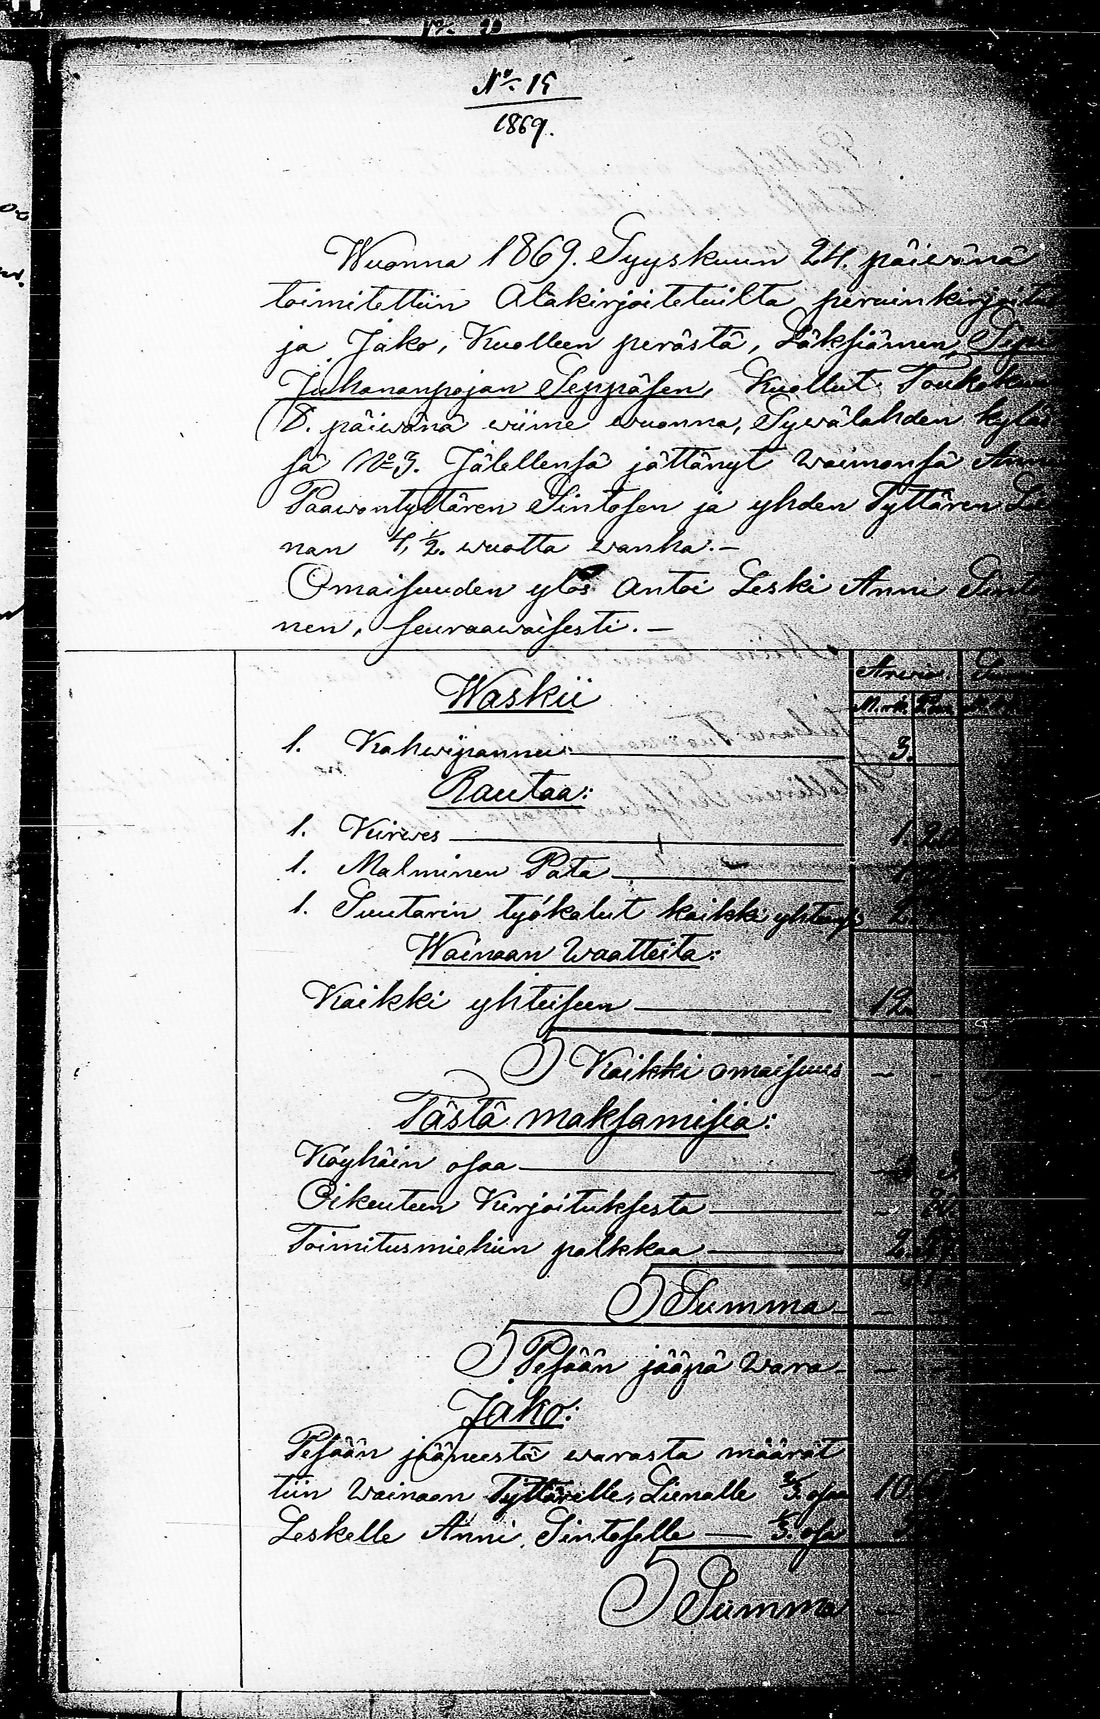 No 15
1869.
Wuonna 1869. Syyskuun 24. päiwänä
toimitettiin Alakirjoitetuilta peruinkirjoitus
ja Jako, Kuolleen perästä, Läksiämen,
Juhananpojan Seppäsen, Kuollut Toukokuun
8. päiwänä wiime wuonna, Sywälahden kyläs
sä No 3. Jälellensä jättänyt waimonsa Anni
Paawontyttären Sintosen ja yhden Tyttären Lie
nan 4,½. wuotta wanha.—
Omaisuuden ylös antoi Leski Anni Sinto
nen, seuraawaisesti.—
Arwio
Waskii
1. Kahwipannu: 3.
Rautaa:
1. Kirwes 1.20
1. Malminen Pata
1. Suutarin työkalut kaikki yhteisesti 2.
Wainaan Waatteita:
Kaikki yhteiseen 12
Kaikki omaisuus — —
Tästä maksamisia:
Köyhäin osaa
Oikeuteen Kirjoituksesta —
Toimitusmiehiin palkkaa 2.
Summa — —
Pesään jääpä wara — —
Jako:
Pesään jääneestä warasta määrät
tiin Wainaan Tyttärelle, Lienalle ⅔. osaa 10
Leskelle Anni, Sintoselle — ⅓. osa
Summa —